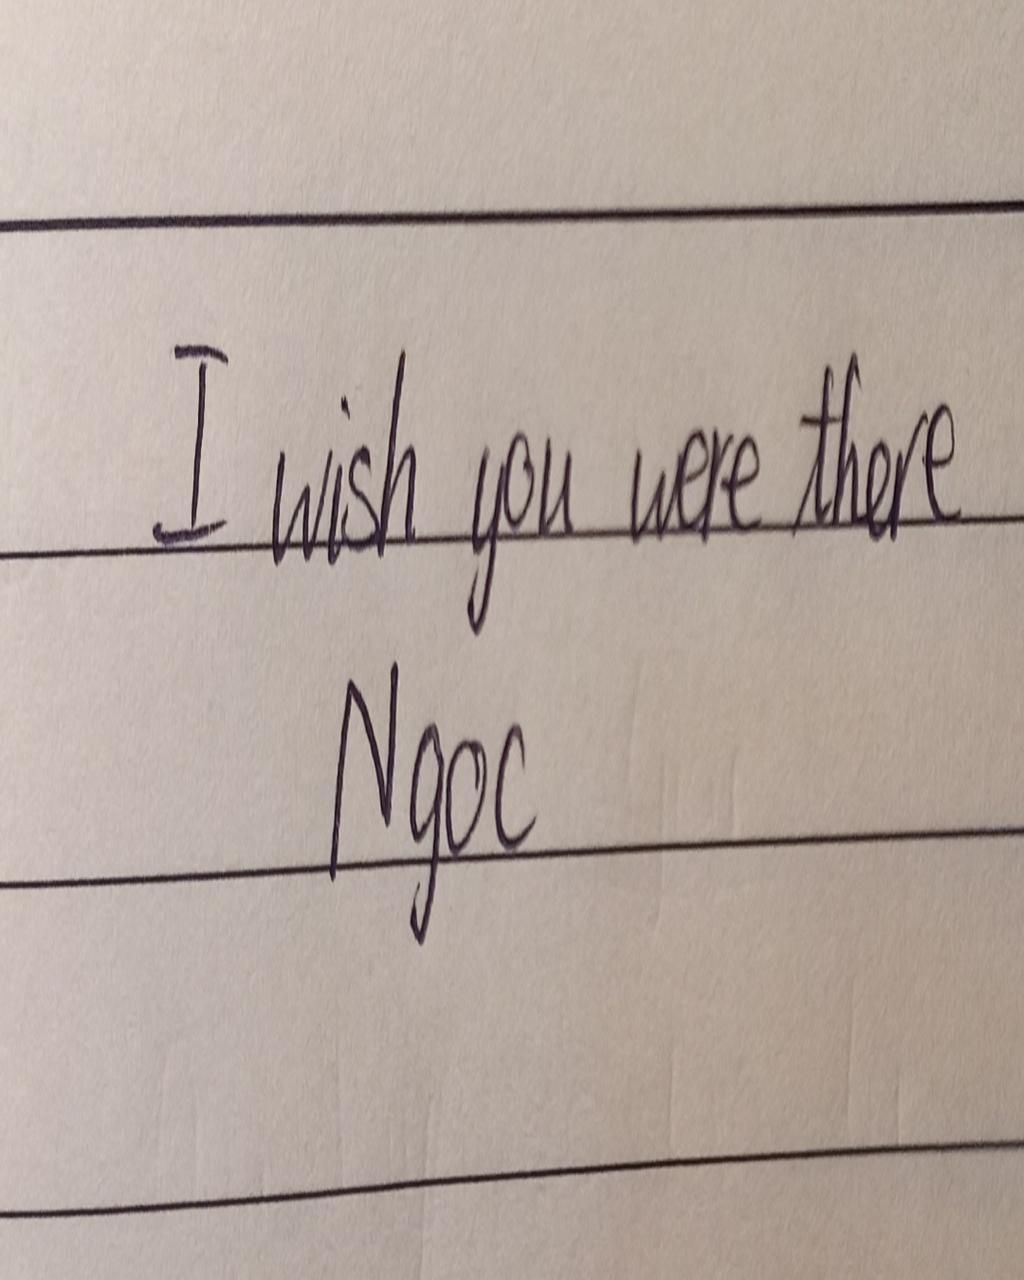 I wish you were there
Ngoc